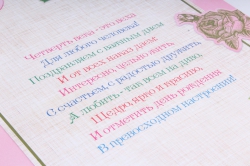 Четверть века - это веха
Для любого человека!
Поздравляем с важным днем
И от всех, наказ даем:
Интересно, цельно жить,
С счастьем, с радостью дружить,
А любить - так всем на диво,
Щедро, ярко и красиво.
И отметить день рождения
В превосходном настроении!